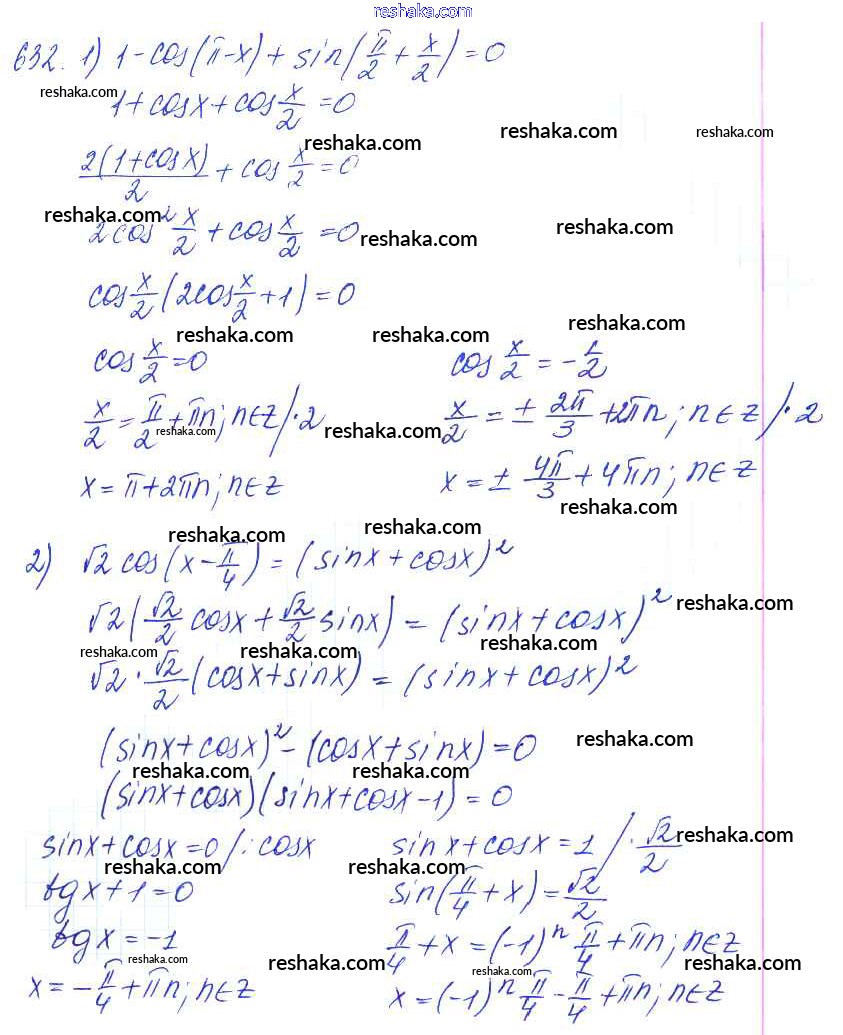 reshaka.com
632. 1) 1-cos(π-x)+sin(π/2+x/2)=0
reshaka.com
1+cosx+cos x/2=0
reshaka.com reshaka.com reshaka.com
2(1+cosx)/2+cos x/2=0
reshaka.com
2cos² x/2+cos x/2=0
reshaka.com reshaka.com
cos x/2(2cos x/2+1)=0
reshaka.com reshaka.com reshaka.com
cos x/2=0 cos x/2=-1/2
x/2=π/2+πn; n∈Z/·2 x/2=±2π/3+2πn; n∈Z/·2
reshaka.com reshaka.com
x=π+2πn; n∈Z x=±4π/3+4πn; n∈Z
reshaka.com
reshaka.com reshaka.com
2) √2cos(x-π/4)=(sinx+cosx)²
√2(√2/2 cosx+√2/2 sinx)=(sinx+cosx)²
reshaka.com
reshaka.com reshaka.com
√2·√2/2(cosx+sinx)=(sinx+cosx)²
(sinx+cosx)²-(cosx+sinx)=0
reshaka.com
reshaka.com reshaka.com
(sinx+cosx)(sinx+cosx-1)=0
sinx+cosx=0/:cosx sinx+cosx=1/·√2/2
reshaka.com
reshaka.com reshaka.com
tgx+1=0 sin(π/4+x)=√2/2
tgx=-1 π/4+x=(-1)ⁿπ/4+πn; n∈Z
reshaka.com reshaka.com reshaka.com reshaka.com
x=-π/4+πn; n∈Z x=(-1)ⁿπ/4-π/4+πn; n∈Z